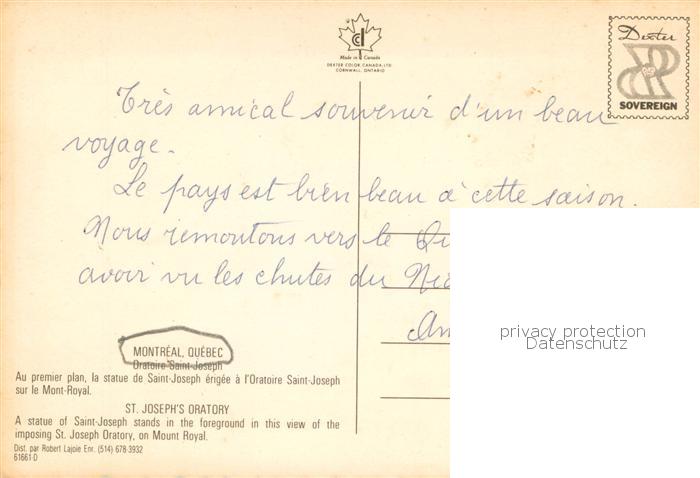 Made in Canada
DEXTER COLOR CANADA, LTD.
CORNWALL, ONTARIO
Dexter
SOVEREIGN
Très amical souvenir d'un beau
voyage.
Le pays est bien beau à cette saison.
Nous remontons vers le
avoir vu les chutes du
MONTRÉAL, QUÉBEC
Oratoire Saint-Joseph
Au premier plan, la statue de Saint-Joseph érigée à l'Oratoire Saint-Joseph
sur le Mont-Royal.
ST. JOSEPH'S ORATORY
A statue of Saint-Joseph stands in the foreground in this view of the
imposing St. Joseph Oratory, on Mount Royal.
Dist. par Robert Lajoie Enr. (514) 678-3932
61661-D
privacy protection
Datenschutz